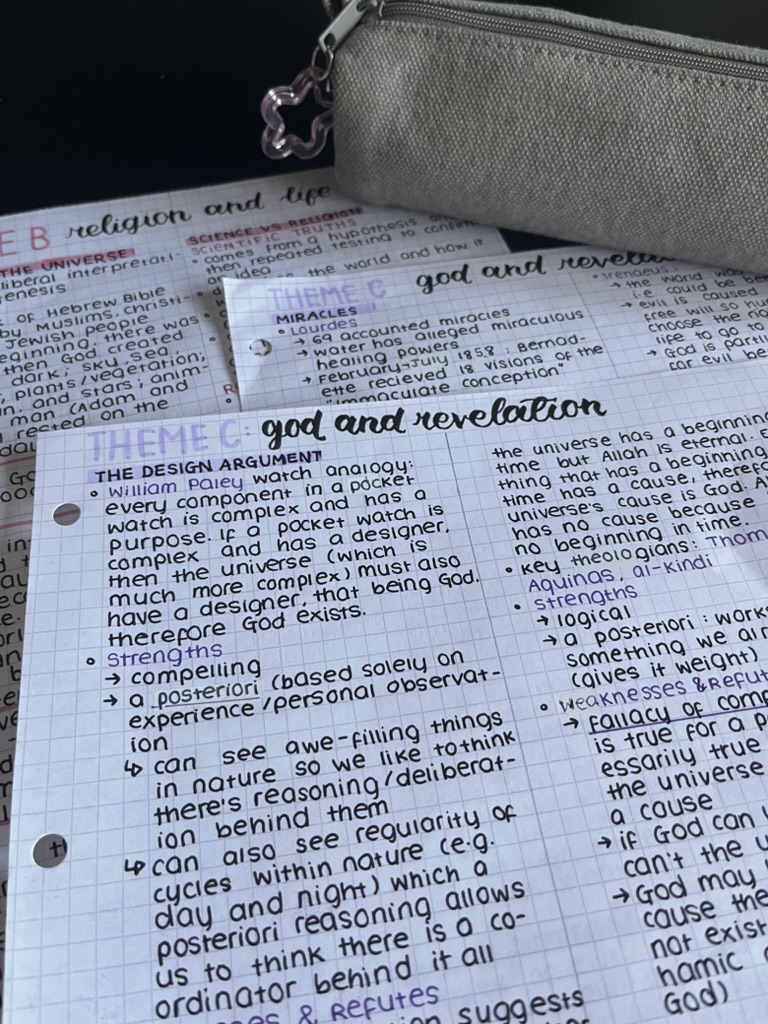 E B religion and life
THE UNIVERSE
liberal interpretati-
enesis
of Hebrew Bible
by Muslims, christi-
Jewish people
eginning, there was
then God created
dark; sky, sea,
plants/vegetation;
and stars; anim-
man (Adam and
rested on the
SCIENCE VS RELIGION
SCIENTIFIC TRUTHS
• comes from a hypothesis and
then repeated testing to confirm
an idea
the world and how it
THEME C god and revela
MIRACLES
• Lourdes
→ 69 accounted miracles
→ water has alleged miraculous
healing powers
→ February-July 1858: Bernad-
ette recieved 18 visions of the
"immaculate conception"
• Irenaeus
→ the world was
i.e. could be
→ evil is caused
free will so hu
choose the
life to go to
→ God is parti
for evil be
THEME C: god and revelation
THE DESIGN ARGUMENT
• William Paley watch analogy:
every component in a pocket
watch is complex and has a
purpose. If a pocket watch is
complex and has a designer,
then the universe (which is
much more complex) must also
have a designer, that being God.
therefore God exists.
• Strengths
→ compelling
→ a posteriori (based solely on
experience/personal observat-
ion
↳ can see awe-filling things
in nature so we like to think
there's reasoning/deliberat-
ion behind them
↳ can also see regularity of
cycles within nature (e.g.
day and night) which a
posteriori reasoning allows
us to think there is a co-
ordinator behind it all
es & REFUTES
on suggests
the universe has a beginning
time but Allah is eternal. E
thing that has a beginning
time has a cause, therefo
universe's cause is God. A
has no cause because
no beginning in time.
• key theologians: Thom
Aquinas, al-kindi
• strengths
→ logical
→ a posteriori: works
something we alr
(gives it weight)
• weaknesses & Refut
→ fallacy of comp
is true for a p
essarily true
the universe
a cause
→ if God can
can't the u
→ God may
cause the
not exist
hamic
God)